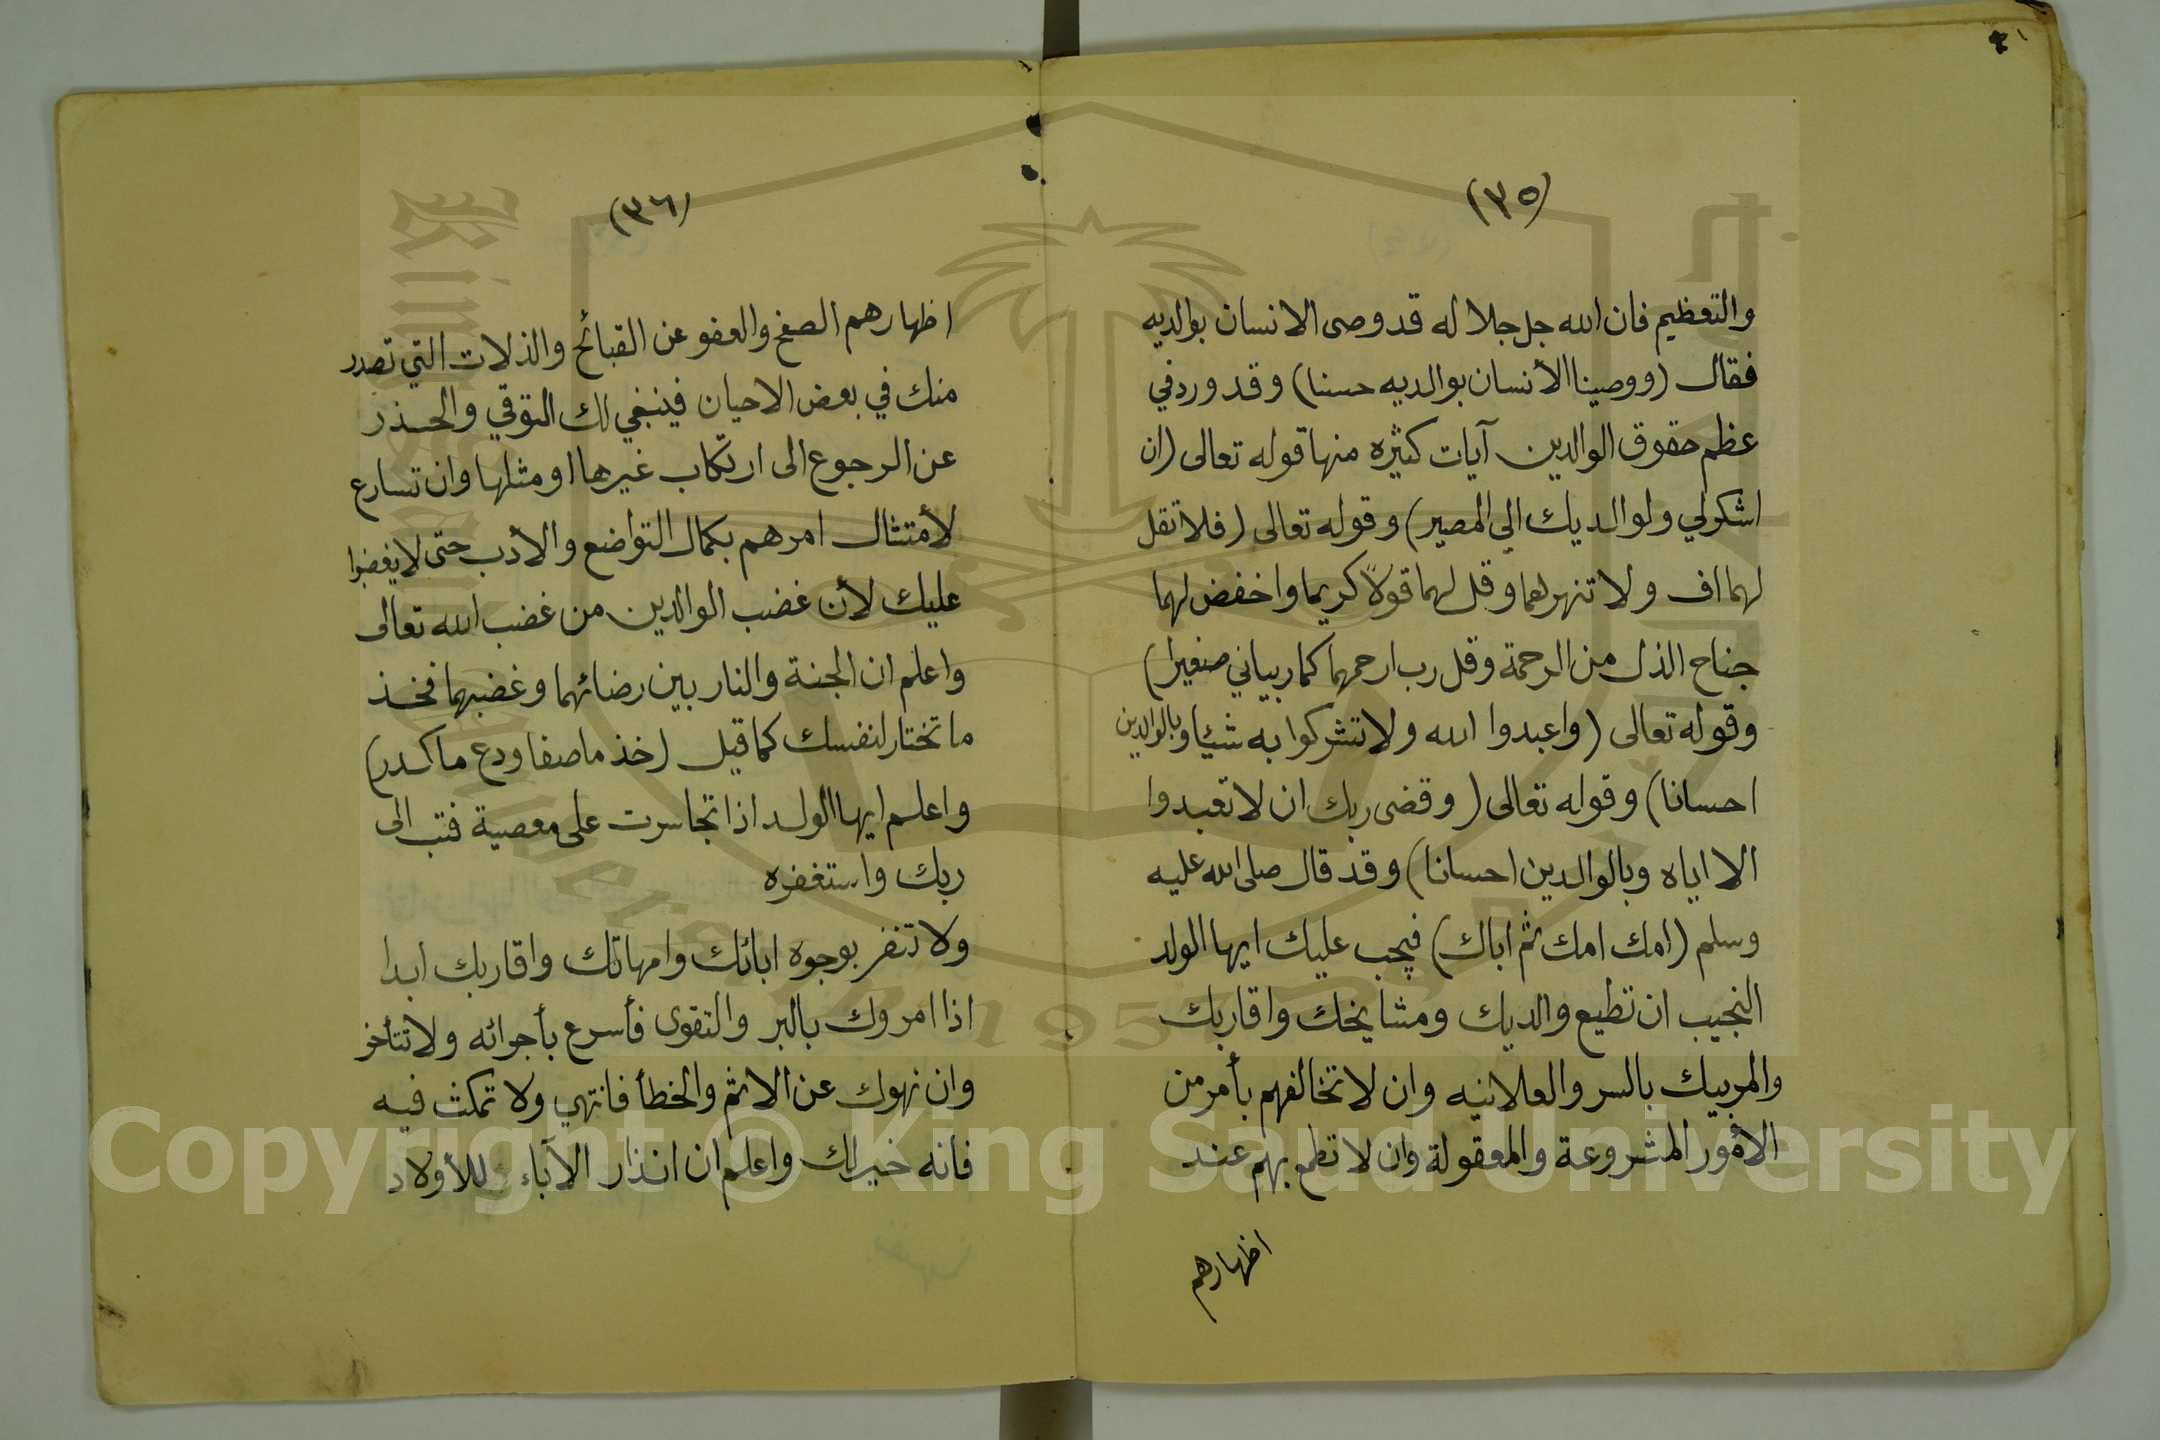 (٣٥)
والتعظيم فان الله جل جلاله قد وصى الانسان بوالديه
فقال (ووصينا الأنسان بوالديه حسنا) وقد ورد في
عظم حقوق الوالدين آيات كثيره منها قوله تعالى (ان
اشكرلي ولوالديك الي المصير) وقوله تعالى (فلا تقل
لهما اف ولا تنهرهما وقل لهما قولاً كريما واخفض لهما
جناح الذل من الرحمة وقل رب ارحمهما كما ربياني صغيرا)
وقوله تعالى (واعبدوا الله ولا تشركوا به شيئا وبالوالدين
احسانا) وقوله تعالى (وقضى ربك ان لا تعبدوا
الا اياه وبالوالدين احسانا) وقد قال صلى الله عليه
وسلم (امك امك ثم اباك) فيجب عليك ايها الولد
النجيب ان تطيع والديك ومشايخك واقاربك
والمربيك بالسر والعلانيه وان لا تخالفهم بأمر من
الأمور المشروعة والمعقولة وان لا تطمع بهم عند
اظهارهم
(٣٦)
اظهارهم الصفح والعفو عن القبائح والذلات التي تصدر
منك في بعض الاحيان فينبغي لك التوقي والحذر
عن الرجوع الى ارتكاب غيرها او مثلها وان تسارع
لأمتثال امرهم بكمال التواضع والأدب حتى لا يغضبوا
عليك لأن غضب الوالدين من غضب الله تعالى
واعلم ان الجنة والنار بين رضائهما وغضبهما فخذ
ما تختار لنفسك كما قيل (خذ ما صفا ودع ما كدر)
واعلم ايها الولد اذا تجاسرت على معصية فتب الى
ربك واستغفره
ولا تنفر بوجوه ابائك وامهاتك واقاربك ابدا
اذا امروك بالبر والتقوى فأسرع بأجرائه ولا تتأخر
وان نهوك عن الاثم والخطأ فانتهي ولا تمكث فيه
فانه خير لك واعلم ان انذار الآباء للأولاد
Copyright © King Saud University
1957